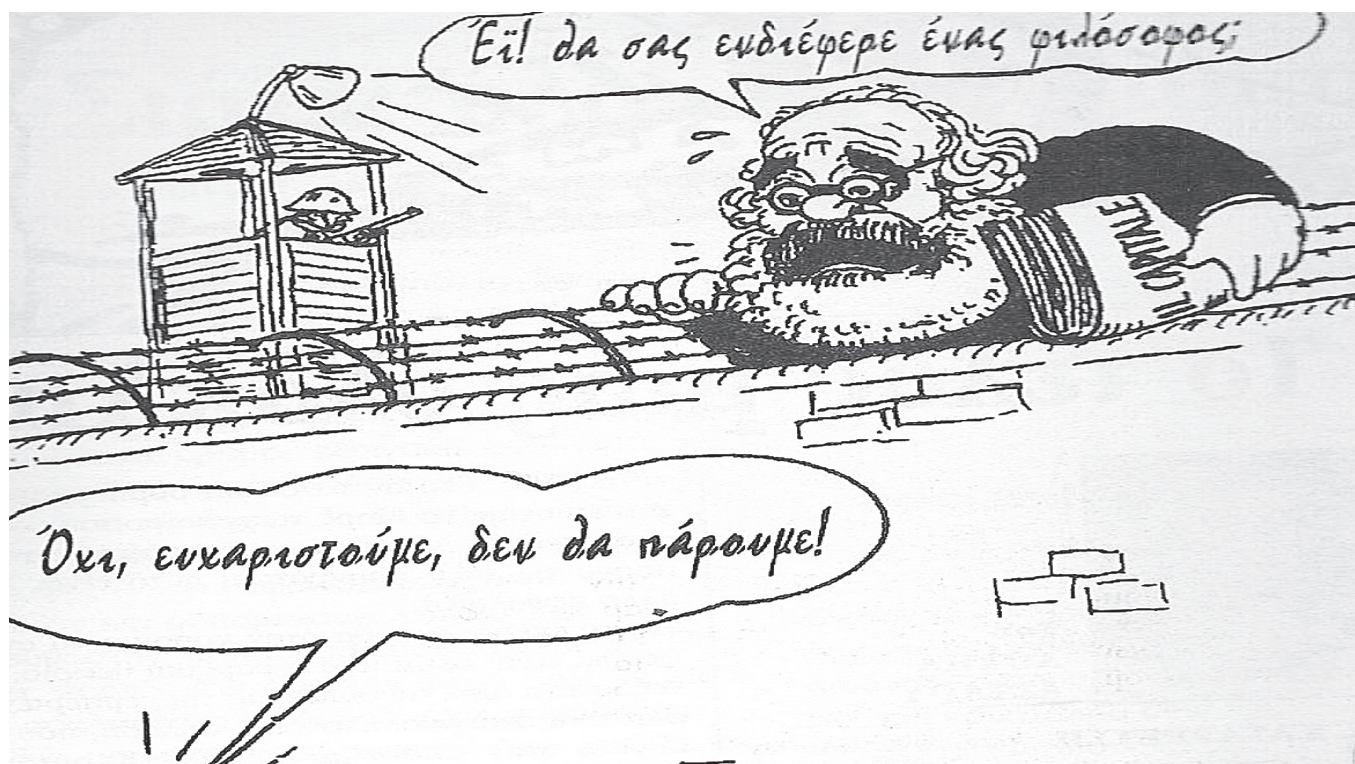 Έϊ! θα σας ενδιέφερε ένας φιλόσοφος;
IL CAPITALE
Όχι, ευχαριστούμε, δεν θα πάρουμε!